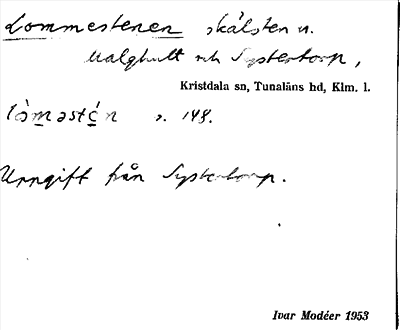 Lommestenen skålsten n.
Malghult och Systertorp,
Kristdala sn, Tunaläns hd, Klm. l.
s. 148.
Uppgift från Systertorp.
Ivar Modéer 1953